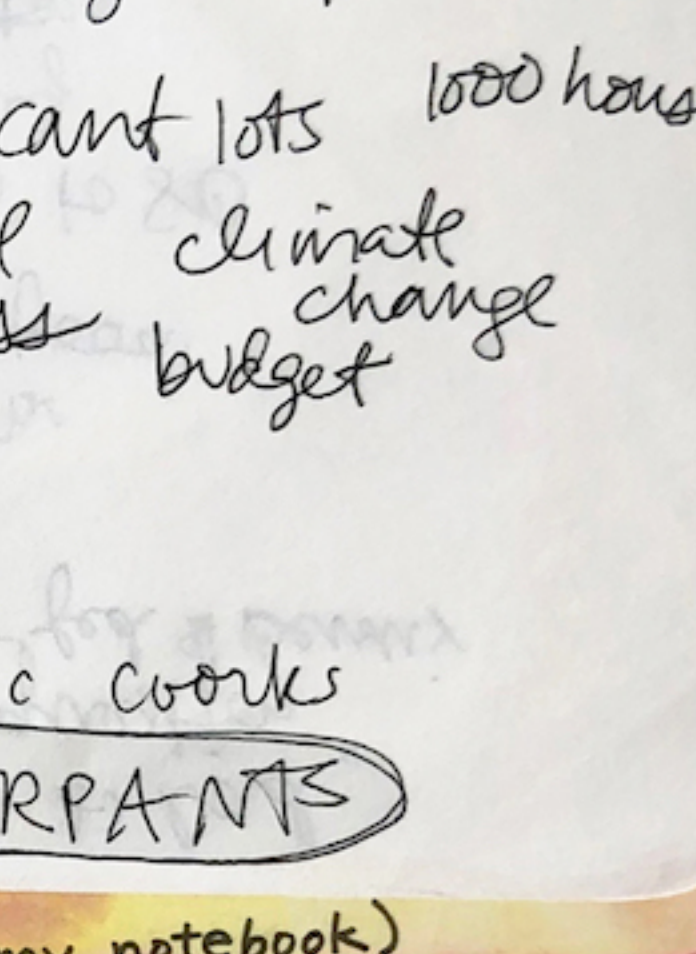 cant lots 1000 hous
climate
change
budget
c works
RPANTS
my notebook)